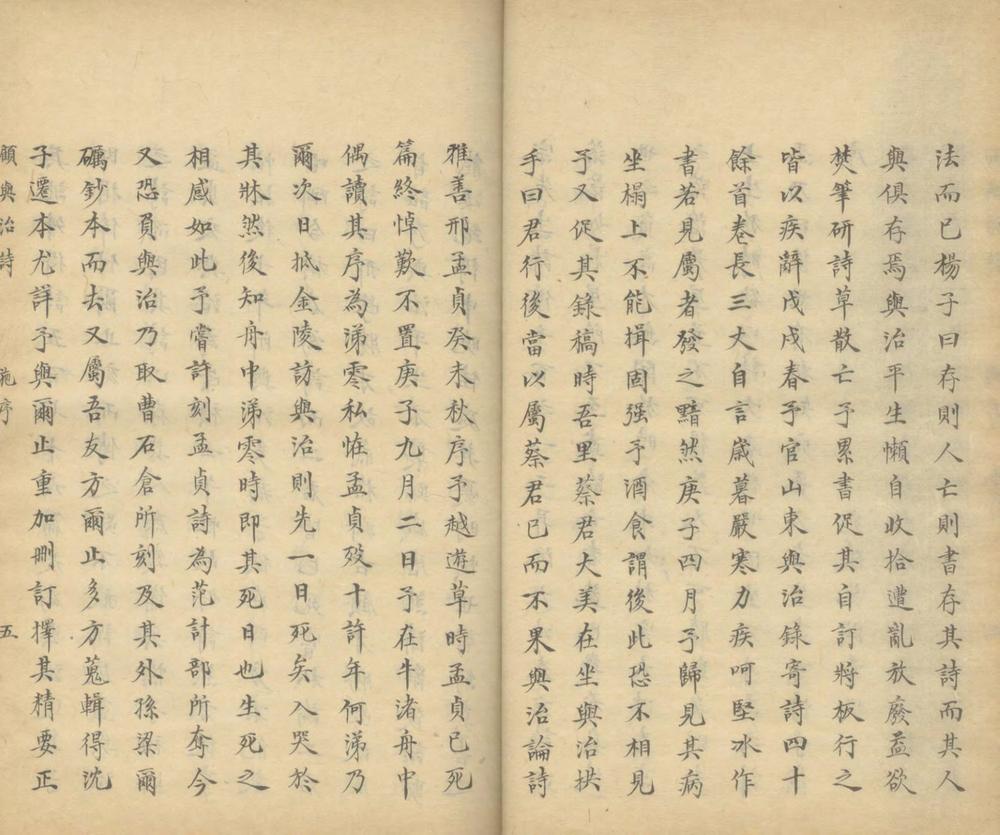 法而已楊子曰存則人亡則書存其詩而其人
與俱存焉與治平生懶自收拾遭亂放廢益欲
焚筆研詩草散亡予累書促其自訂將板行之
皆以疾辭戊戌春予官山東與治錄寄詩四十
餘首卷長三丈自言歲暮嚴寒力疾呵堅冰作
書若見屬者發之黯然庚子四月予歸見其病
坐榻上不能揖固强予酒食謂後此恐不相見
予又促其錄稿時吾里蔡君大美在坐與治拱
手曰君行後當以屬蔡君已而不果與治論詩
雅善邢孟貞癸未秋序予越遊草時孟貞已死
篇終悼歎不置庚子九月二日予在牛渚舟中
偶讀其序為涕零私恠孟貞歿十許年何涕乃
爾次日抵金陵訪與治則先一日死矣入哭於
其牀然後知舟中涕零時即其死日也生死之
相感如此予嘗許刻孟貞詩為范計部所奪今
又恐負與治乃取曹石倉所刻及其外孫梁爾
礪鈔本而去又屬吾友方爾止多方蒐輯得沈
子遷本尤詳予與爾止重加刪訂擇其精要正
顧與治詩 施序 五